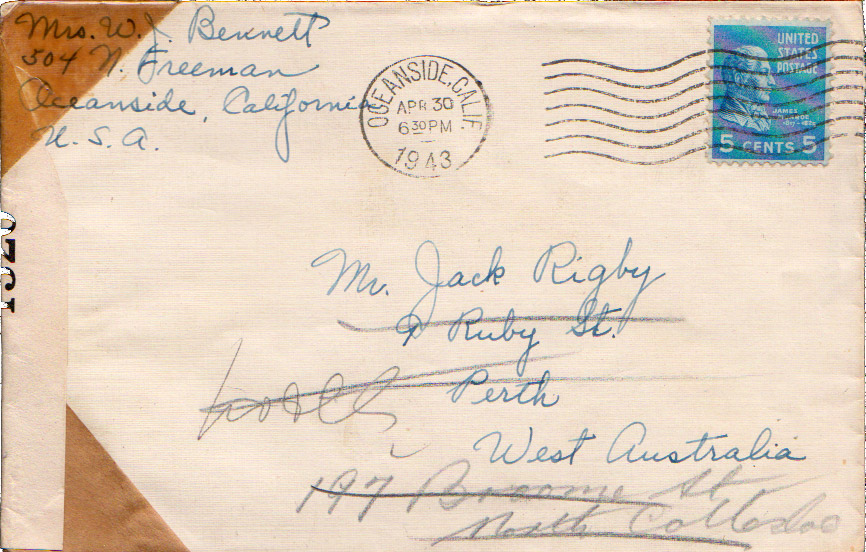 Mrs. W. J. Bennett
504 N. Freeman
Oceanside, California
U. S. A.
OCEANSIDE, CALIF.
APR 30
6 30 PM
1943
UNITED
STATES
POSTAGE
JAMES
5 CENTS 5
Mr. Jack Rigby
9 Ruby St.
Perth
West Australia
197 Broome St
North Cottesloe